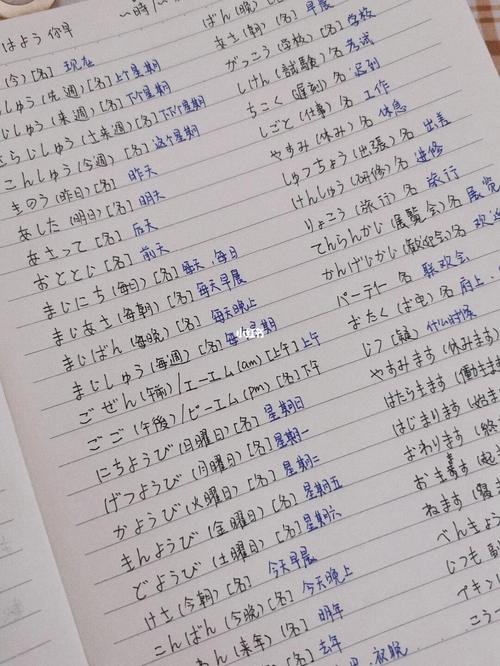 はよう 你早
～時/～
(今)[名] 现在
しゅう(先週)[名]上个星期
じしゅう(来週)[名]下个星期
さらじしゅう(さ来週)[名]下下个星期
こんしゅう(今週)[名]这个星期
きのう(昨日)[名] 昨天
あした(明日)[名] 明天
あさって[名] 后天
おととじ[名] 前天
まじにち(毎日)[名]每天、每日
まじあさ(毎朝)[名]每天早晨
まじばん(毎晩)[名]每天晚上
まじしゅう(毎週)[名]每星期
ごぜん(午前)/エーエム(am)[名]上午
ごご(午後)/ピーエム(pm)[名]下午
にちようび(日曜日)[名]星期日
げつようび(月曜日)[名]星期一
かようび(火曜日)[名]星期二
きんようび(金曜日)[名]星期五
どようび(土曜日)[名]星期六
けさ(今朝)[名] 今天早晨
こんばん(今晩)[名]今天晚上
ねん(来年)[名] 明年
[名]去年
夜晚
ばん(晩)[名]
あさ(朝)[名] 早晨
がっこう(学校)[名]学校
しけん(試験)名 考试
ちこく(遅刻)名 迟到
しごと(仕事)名 工作
やすみ(休み)名 休息
しゅっちょう(出張)名 出差
けんしゅう(研修)名 进修
りょこう(旅行)名 旅行
てんらんかじ(展覧会)名 展览
かんげじかじ(歓迎会)名 欢迎
パーティー 名 联欢会
おたく(お宅)名 府上
じつ 什么时候
やすみます(休みます)
はたらきます(働きます
はじまります(始ま
おわります(終
おきます(起
ねます(寝
べんきょ
じつも
こう
小红书